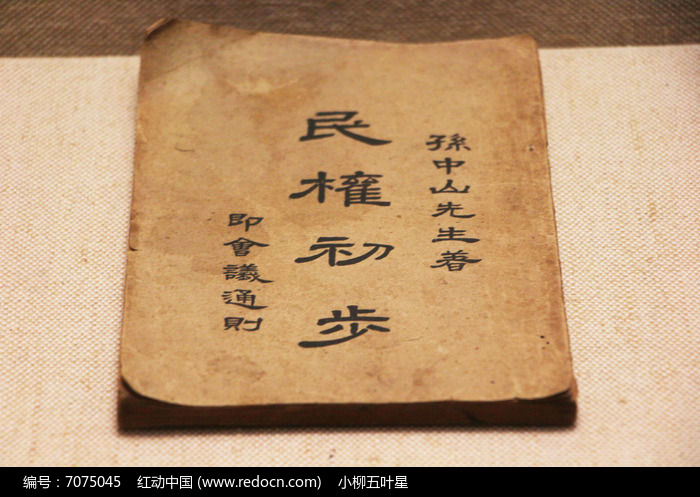 孫中山先生著
民權初步
即會議通則
编号：7075045 红动中国 (www.redocn.com) 小柳五叶星